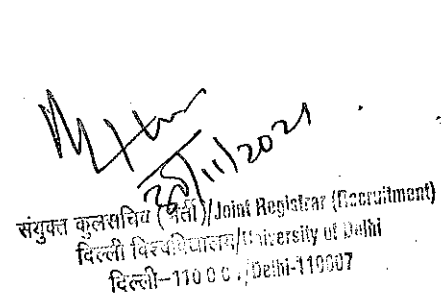 /11/2021
संयुक्त कुलसचिव (भर्ती)/Joint Registrar (Recruitment)
दिल्ली विश्वविद्यालय/University of Delhi
दिल्ली-11000 /Delhi-110007